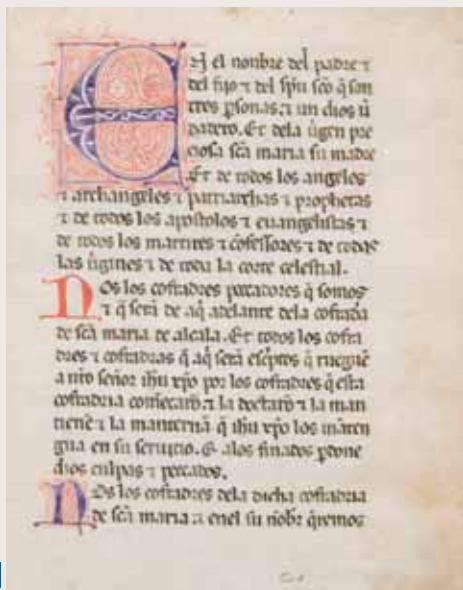 En el nonbre del padre ⁊
del fijo ⁊ del sp̄u sc̄o q̄ son
tres p̄sonas. ⁊ un dios ū
dadero. Et dela ūgen pre
ciosa sc̄a maria su madre
Et de todos los angeles
⁊ archangeles ⁊ patriarchas ⁊ prophetas
⁊ de todos los apostolos ⁊ euangelistas ⁊
de todos los martires ⁊ cōfessores ⁊ de todas
las ūgines ⁊ de toda la corte celestial.
Nos los cofradres peccadores q̄ somos
⁊ q̄ serā de aq̄ adelante dela cofradia
de sc̄a maria de alcala. Et todos los cofra
dres ⁊ cofradras q̄ aq̄ serā esc̄ptos q̄ rueguē
a nr̄o señor ih̄u xp̄o por los cofradres q̄ esta
cofradria comēcarō. ⁊ la doctarō ⁊ la man
tienē ⁊ la manternā q̄ ih̄u xp̄o los māten
gua en su seruicio. E alos finados p̄done
dios culpas ⁊ peccados.
Nos los cofradres dela dicha cofradria
de sc̄a maria ⁊ enel su nōbr̄ q̄remos